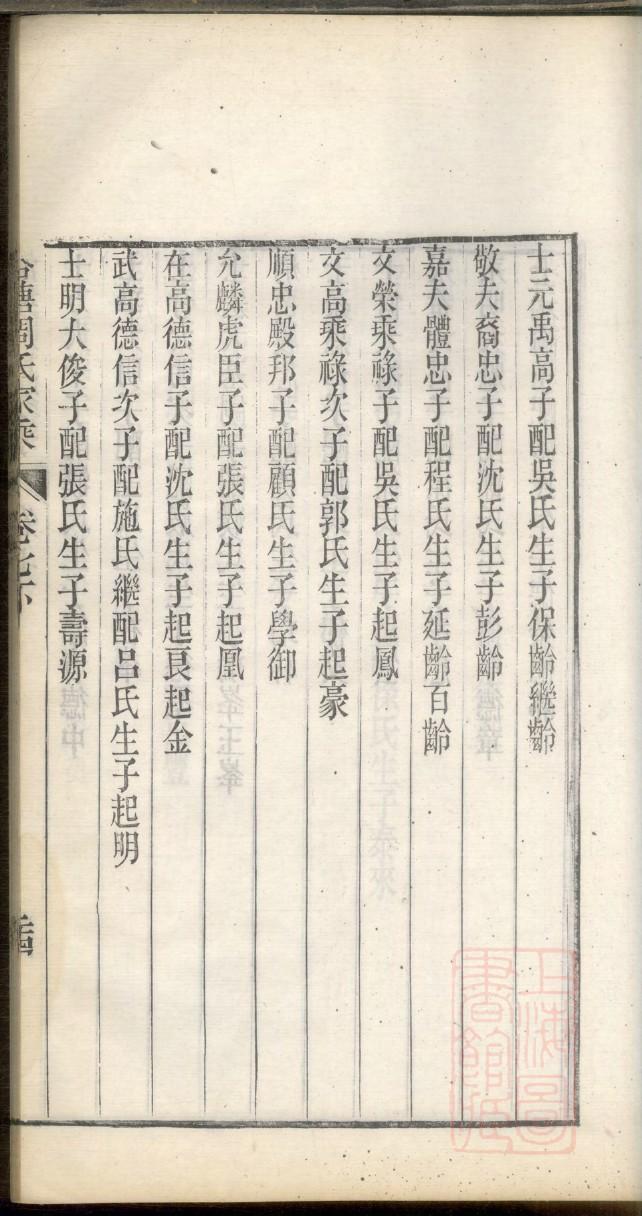 士元禹高子配吳氏生子保齡繼齡
敬夫裔忠子配沈氏生子彭齡
嘉夫體忠子配程氏生子延齡百齡
文榮乘祿子配吳氏生子起鳳
文高乘祿次子配郭氏生子起豪
順忠殿邦子配顧氏生子學御
允麟虎臣子配張氏生子起凰
在高德信子配沈氏生子起良起金
武高德信次子配施氏繼配呂氏生子起明
士明大俊子配張氏生子壽源
塘周氏家乘 卷七下
上海圖書館藏